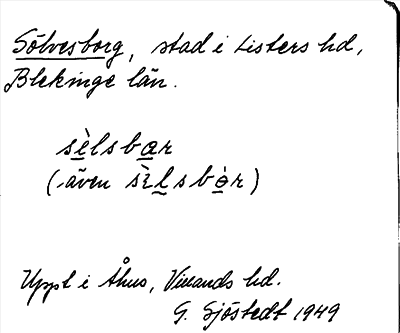 Sölvesborg, stad i Listers hd,
Blekinge län.
sèlsbar
(även sèlsbòr)
Uppt i Åhus, Villands hd.
G. Sjöstedt 1949